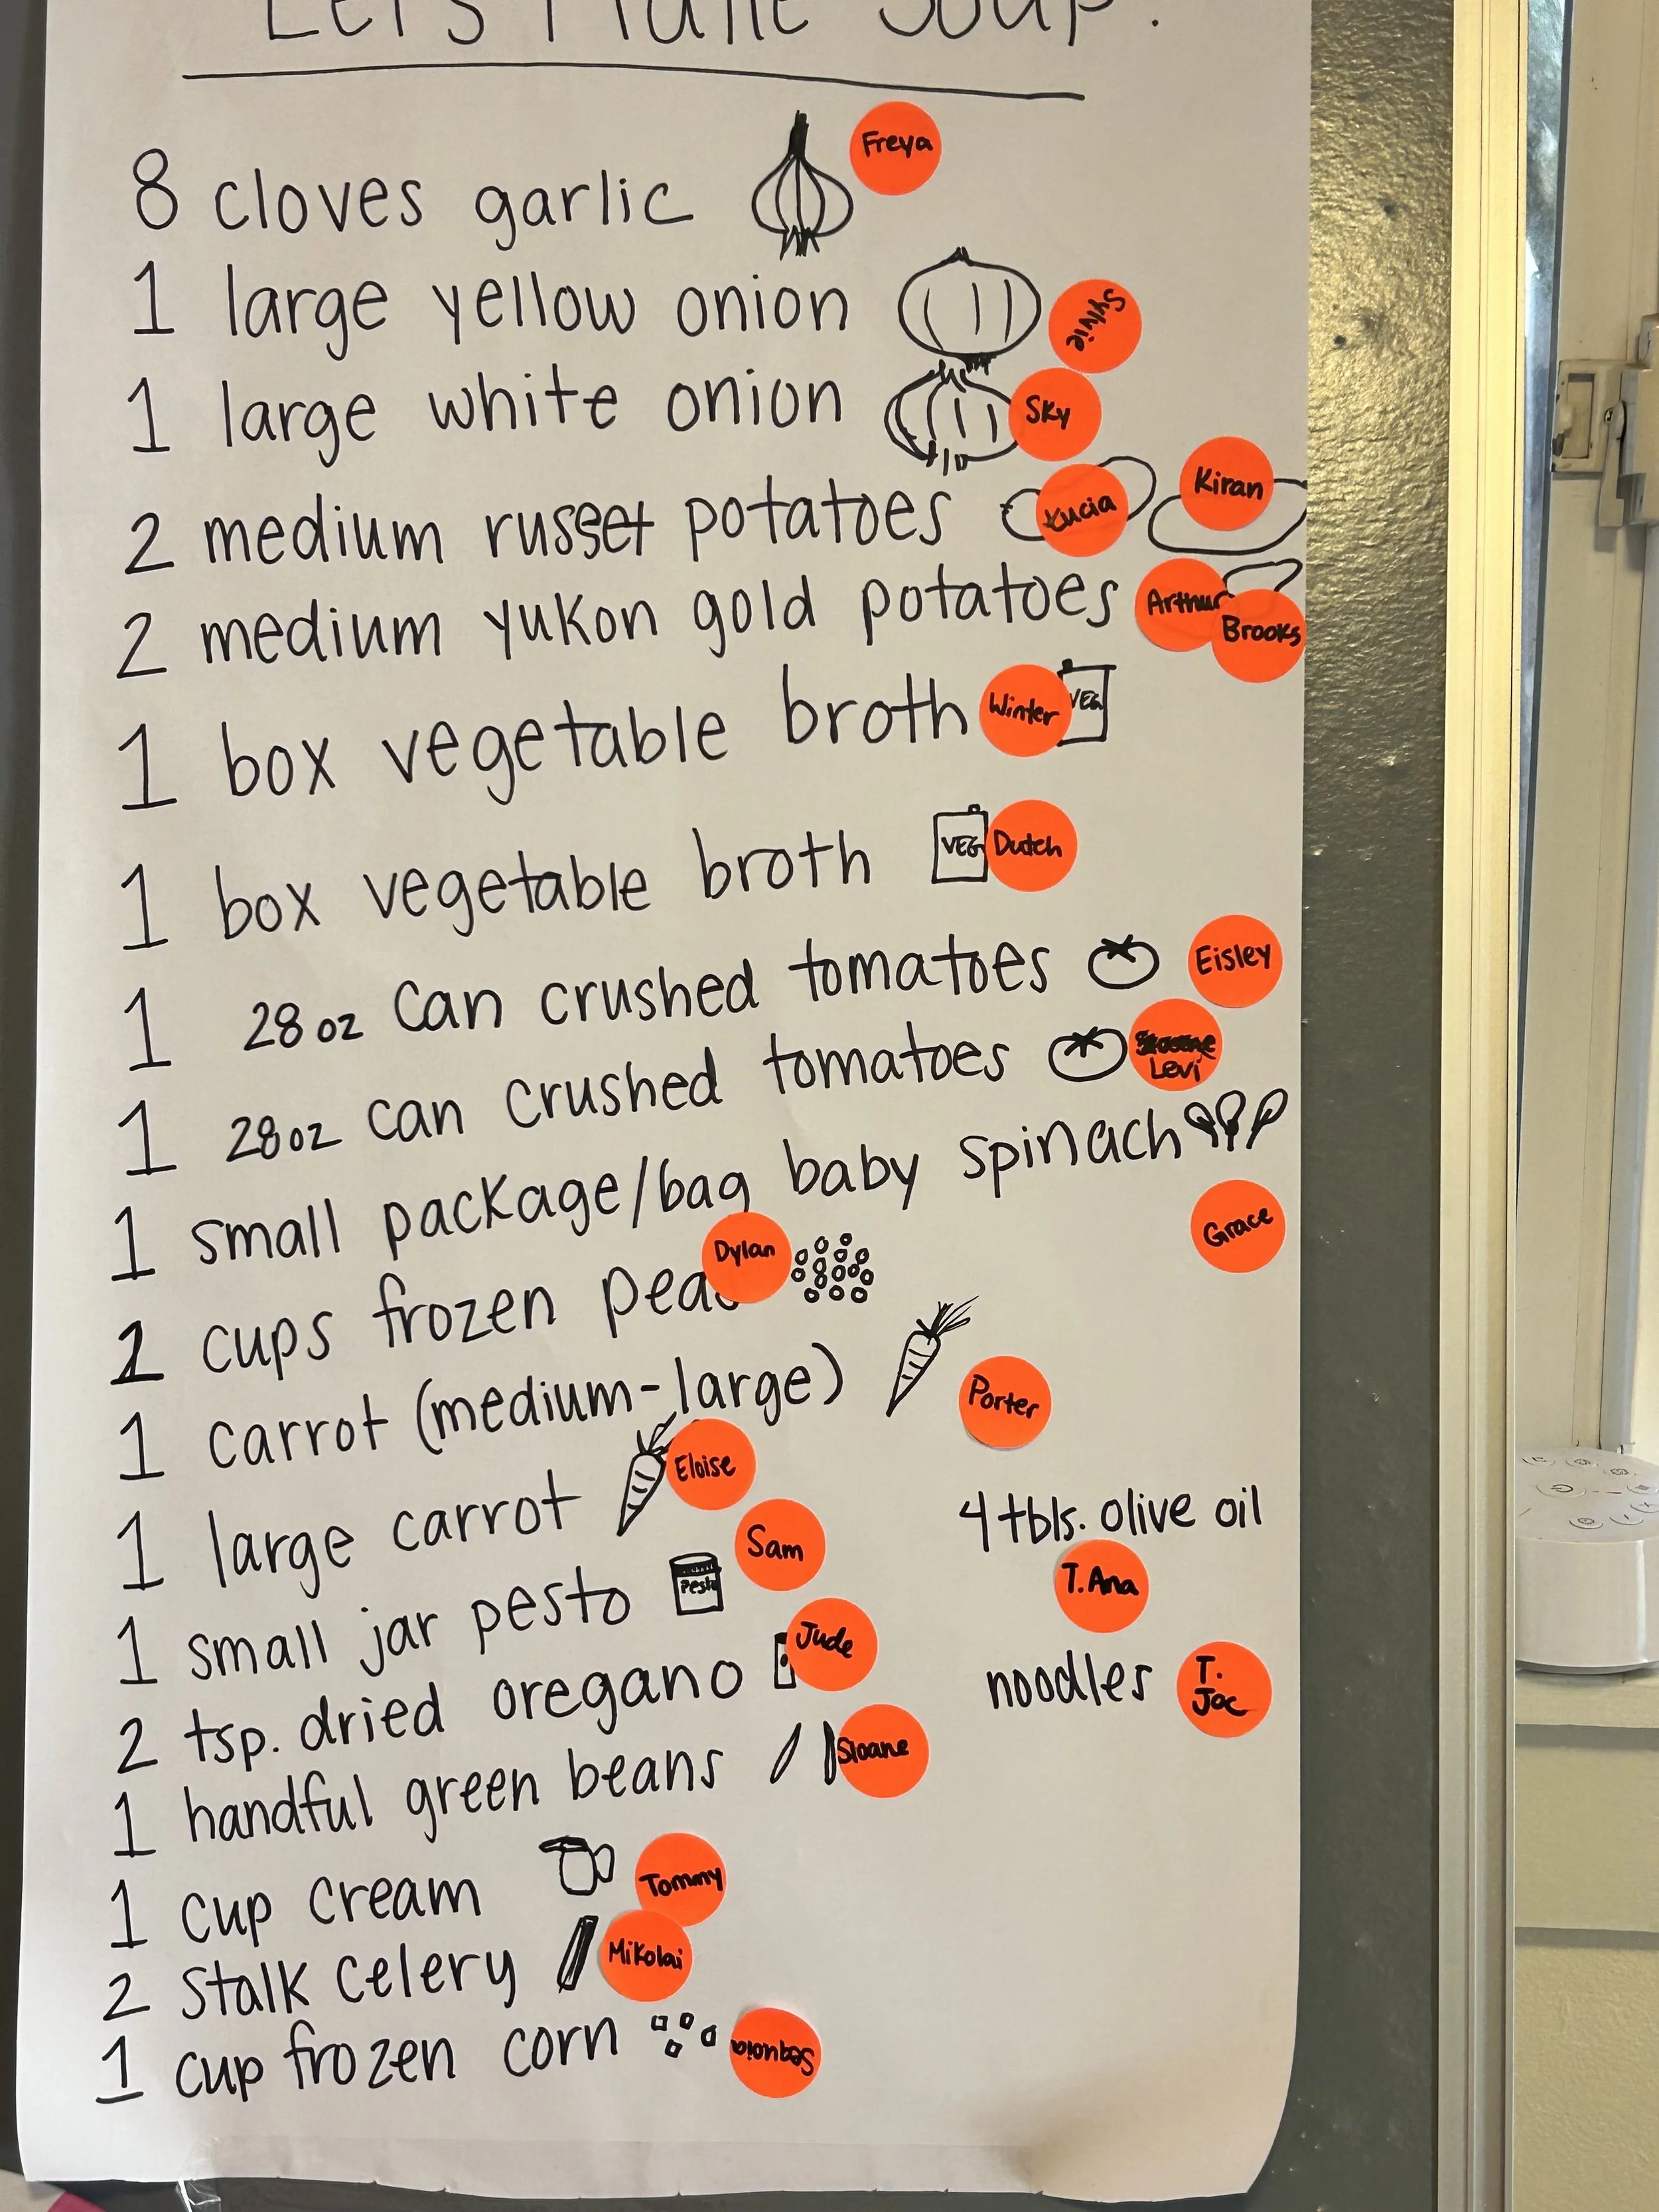 Let's Make Soup!
8 cloves garlic Freya
1 large yellow onion Sylvie
1 large white onion Sky
2 medium russet potatoes Lucia Kiran
2 medium yukon gold potatoes Arthur Brooks
1 box vegetable broth Winter VEG
1 box vegetable broth VEG Dutch
1 28 oz can crushed tomatoes Eisley
1 28 oz can crushed tomatoes Levi
1 small package/bag baby spinach
Grace
cups frozen peas Dylan
1 carrot (medium-large) Porter
1 large carrot Eloise
4 tbls. olive oil
T. Ana
1 small jar pesto Pesto Sam
2 tsp. dried oregano Jude
noodles T. Joc
1 handful green beans Sloane
1 cup cream Tommy
2 stalk celery Mikolai
1 cup frozen corn Sequoia